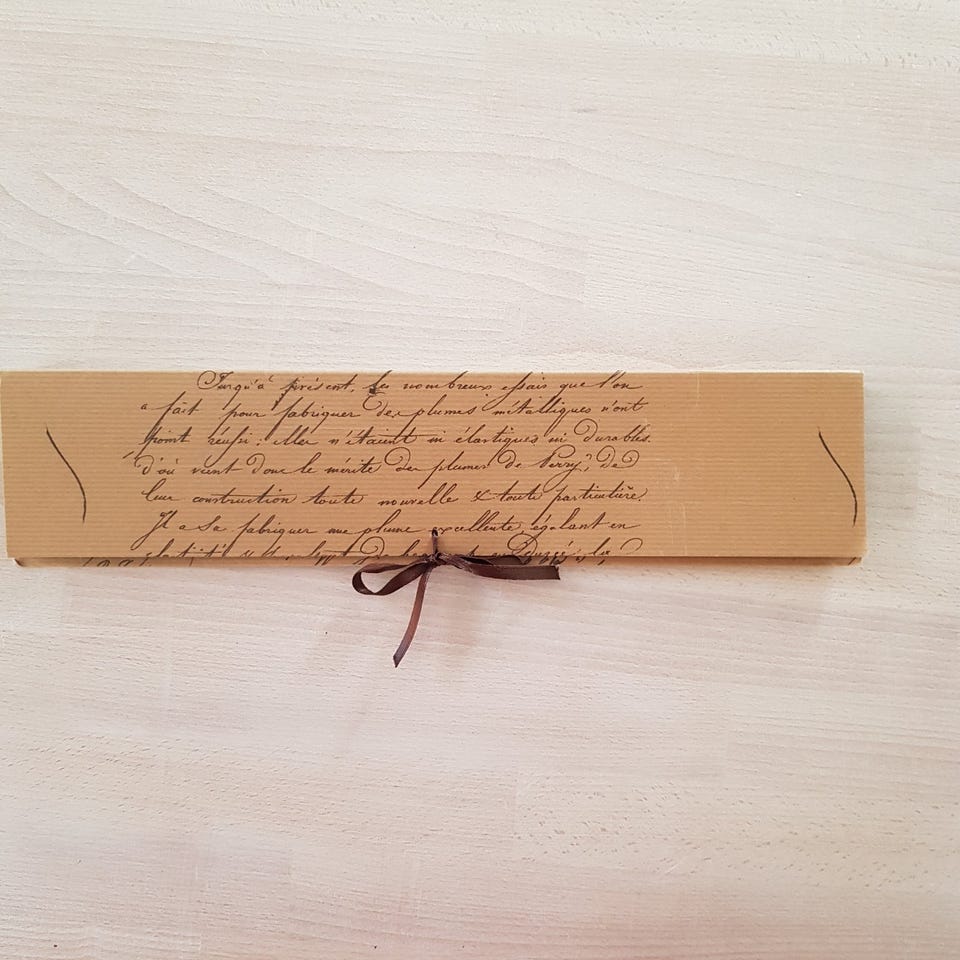 Jusqu'à présent, les nombreux essais que l'on
a fait pour fabriquer des plumes métalliques n'ont
point réussi : elles n'étaient ni élastiques ni durables.
d'où vient donc le mérite des plumes de Perry, de
leur construction toute nouvelle & toute particulière.
Il a su fabriquer une plume excellente, égalant en